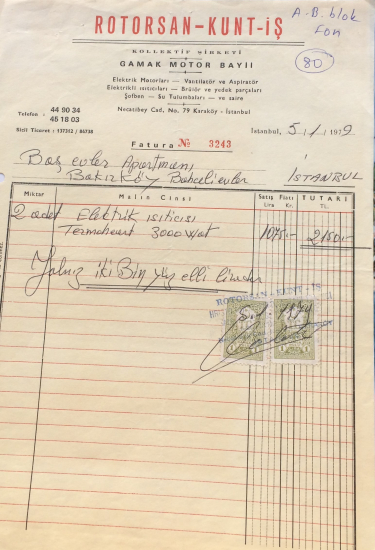 A-B. blok
fon
80
ROTORSAN-KUNT-İŞ
KOLLEKTİF ŞİRKETİ
GAMAK MOTOR BAYII
Elektrik Motorları — Vantilatör ve Aspiratör
Elektrikli ısıtıcıları — Brülör ve yedek parçaları
Şofben — Su Tulumbaları — ve saire
Necatibey Cad. No. 79 Karaköy - İstanbul
Telefon : 44 90 34
45 18 03
Sicil Ticaret : 137312 / 84738
İstanbul, 5/1/1979
Fatura No 3243
Baş evler Apartmanı
Bakırköy Bahçelievler İSTANBUL
Miktar Malın Cinsi Satış Fiatı TUTARI
Lira Kr. TL.
2 adet Elektrik ısıtıcısı
Termoheat 3000 Wat 1075.- 2150.-
Yalnız iki Bin yüz elli liradır
ROTORSAN - KUNT - İŞ
5.1.1979